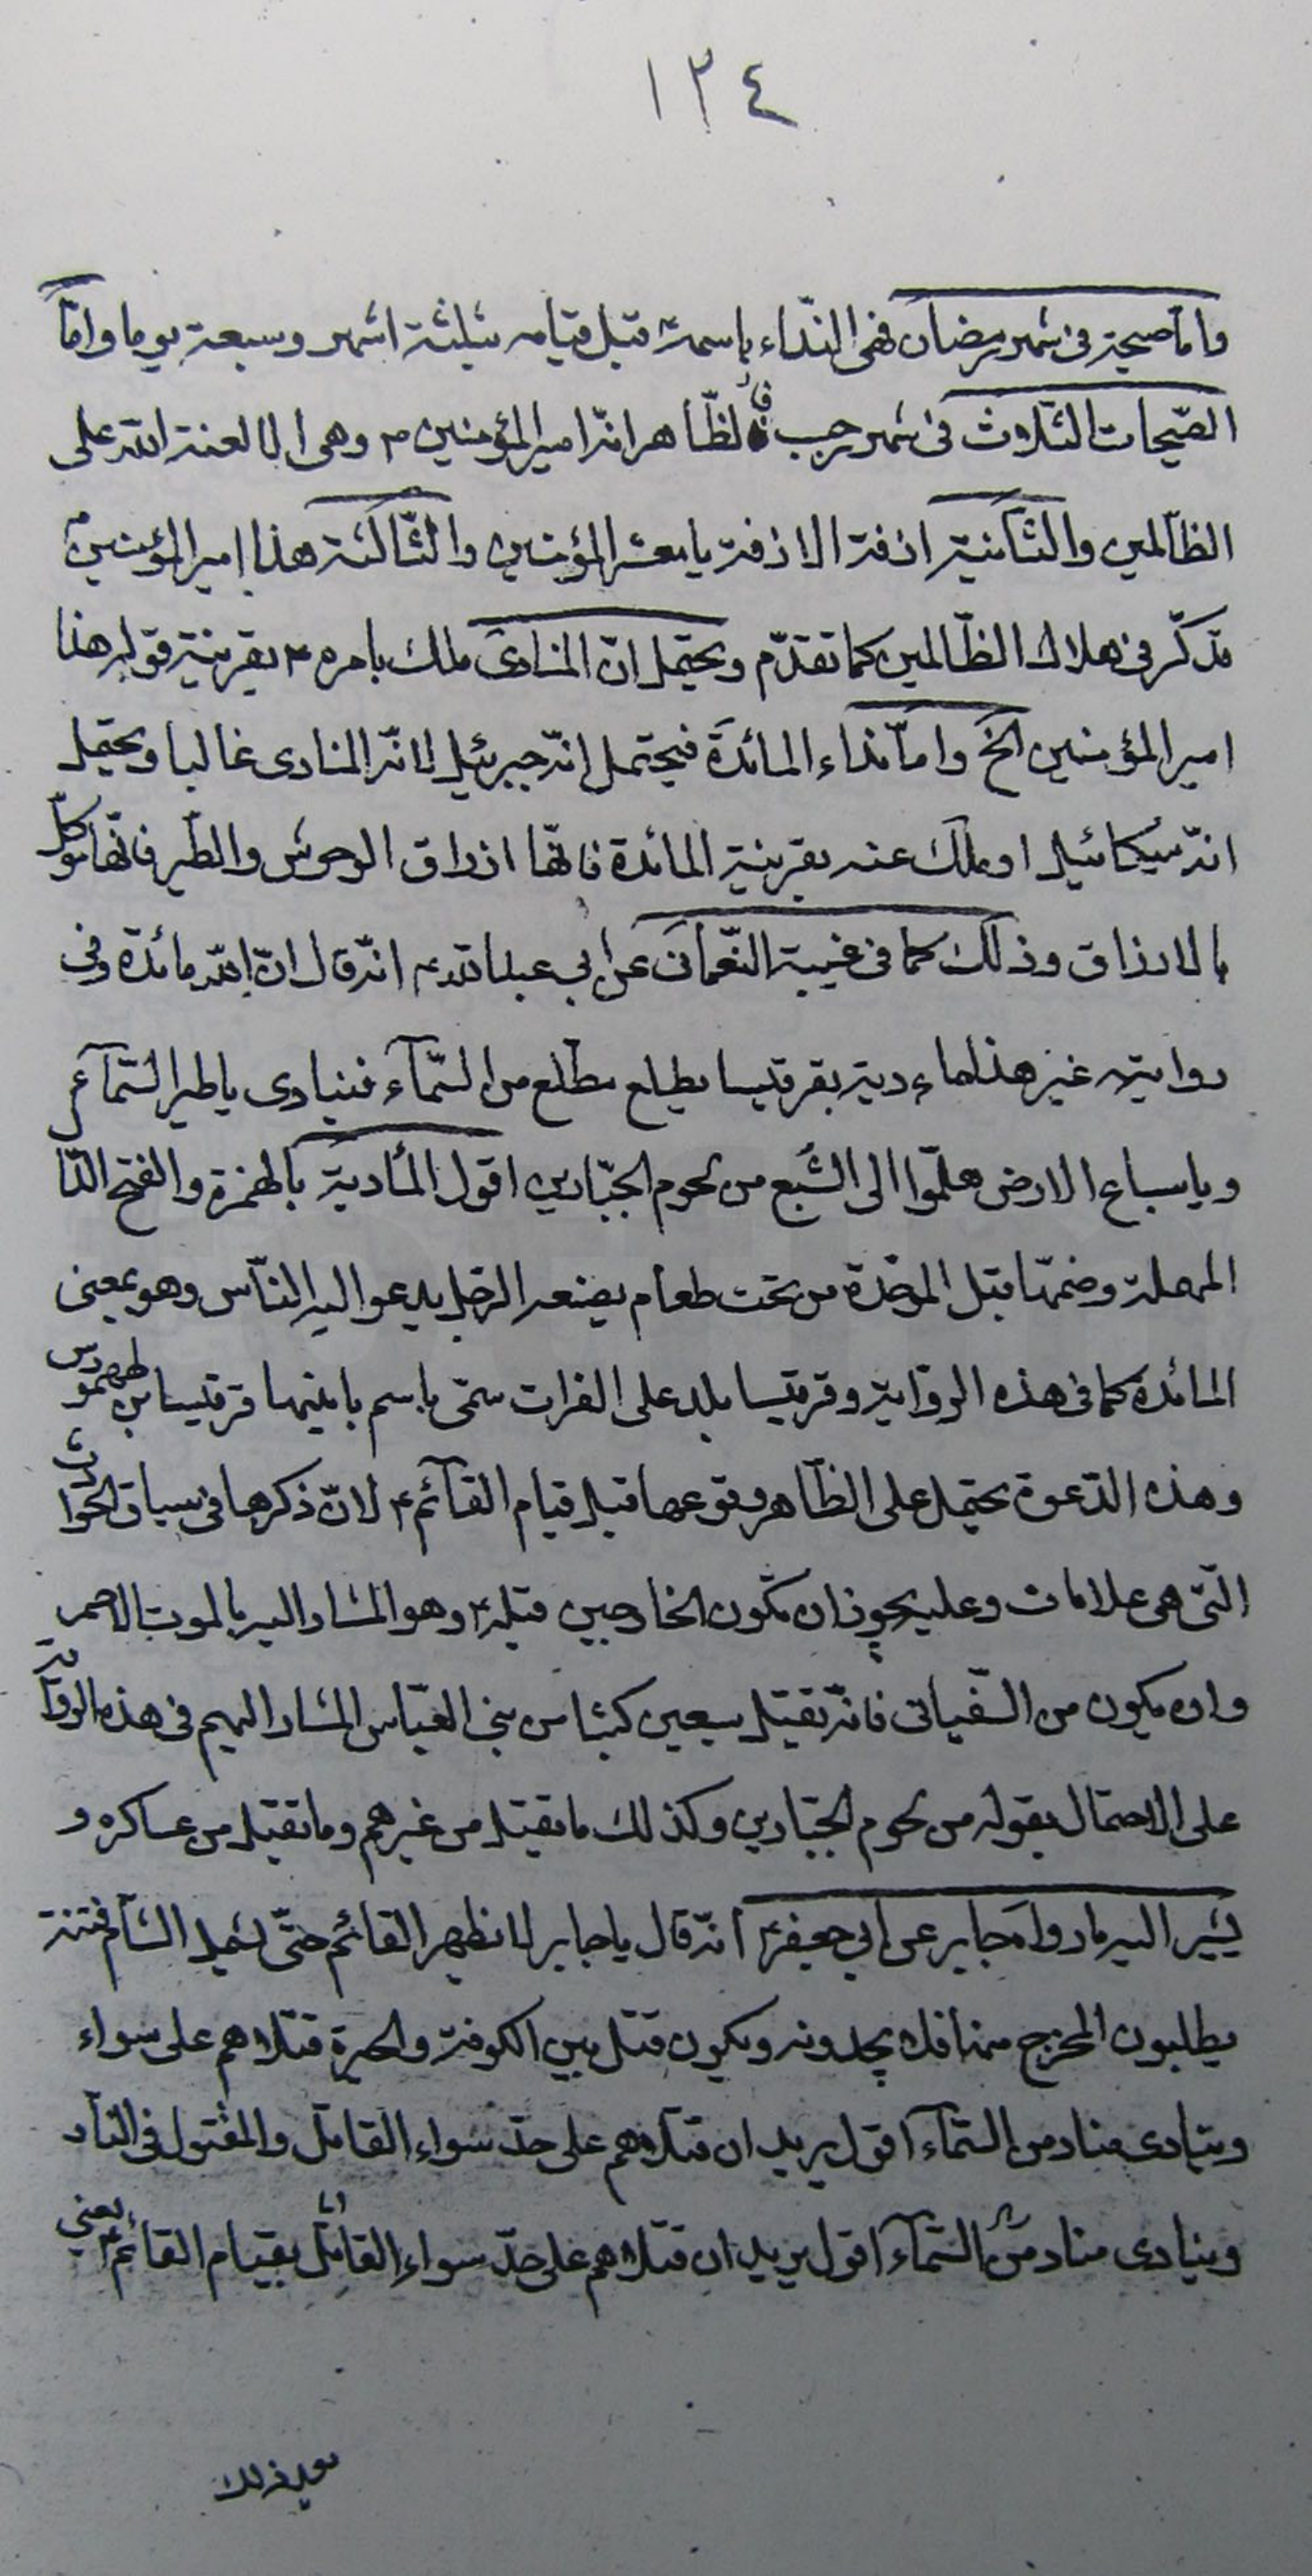 ١٣٤
واما صيحة فى شهر رمضان فهى النّداء باسمه ع قبل قيامه بثلثة اشهر وسبعة يوما وامّا
الصّيحات الثّلاث فى شهر رجب فالظّاهر انّه امير المؤمنين ع وهى الا لعنة اللّه على
الظّالمين والثّانية ازفة الازفة يا معشر المؤمنين والثّالثة هذا امير المؤمنين ع
قد كرّ فى هلاك الظّالمين كما تقدّم ويحتمل انّ المنادى ملك بامره ع بقرينة قوله هذا
امير المؤمنين الخ وامّا نداء المائدة فيحتمل انّه جبرئيل لانّه المنادى غالبا ويحتمل
انّه ميكائيل او ملك عنه بقرينة المائدة فانّها ارزاق الوحوش والطّير فانّها موكّل
بالارزاق وذلك كما فى غيبة النّعمانى عن ابى عبد اللّه ع انّه قال انّ للّه مائدة وفى
رواية غير هذا مادبة بقرقيسا يطلع مطلع من السّماء فينادى يا طير السّماء
ويا سباع الارض هلمّوا الى الشّبع من لحوم الجبّارين اقول المأدبة بالهمزة والفتح الدّا
المهملة وضمّها قبل الموحّدة من تحت طعام يصنعه الرّجل يدعو اليه النّاس وهو بمعنى
المائدة كما فى هذه الرّواية وقرقيسا بلد على الفرات سمّى باسم بانيها قرقيسا بن طهمورس
وهذه الدّعوة يحتمل على الظّاهر وقوعها قبل قيام القائم ع لانّ ذكرها فى سياق الحوادث
الّتى هى علامات وعليه يجوز ان تكون الخارجين قبله ع وهو المشار اليه بالموت الاحمر
وان يكون من السّفيانى فانّه يقتل سبعين كبشا من بنى العبّاس المشار اليهم فى هذه الرّواية
على الاحتمال بقوله من لحوم الجبّارين وكذلك ما يقتل من غيرهم وما يقتل من عساكره و
يشير اليه ما رواه جابر عن ابى جعفر ع انّه قال يا جابر لا يظهر القائم حتّى يشمل الشّام فتنة
يطلبون المخرج منها فلا يجدونه ويكون قتل بين الكوفة والحيرة قتلاهم على سواء
وينادى مناد من السّماء اقول يريد ان قتلاهم على حدّ سواء القاتل والمقتول فى النّار
وينادى مناد من السّماء اقول يريد ان قتلاهم على حدّ سواء القاتل بقيام القائم ع يعنى
بعد ذلك